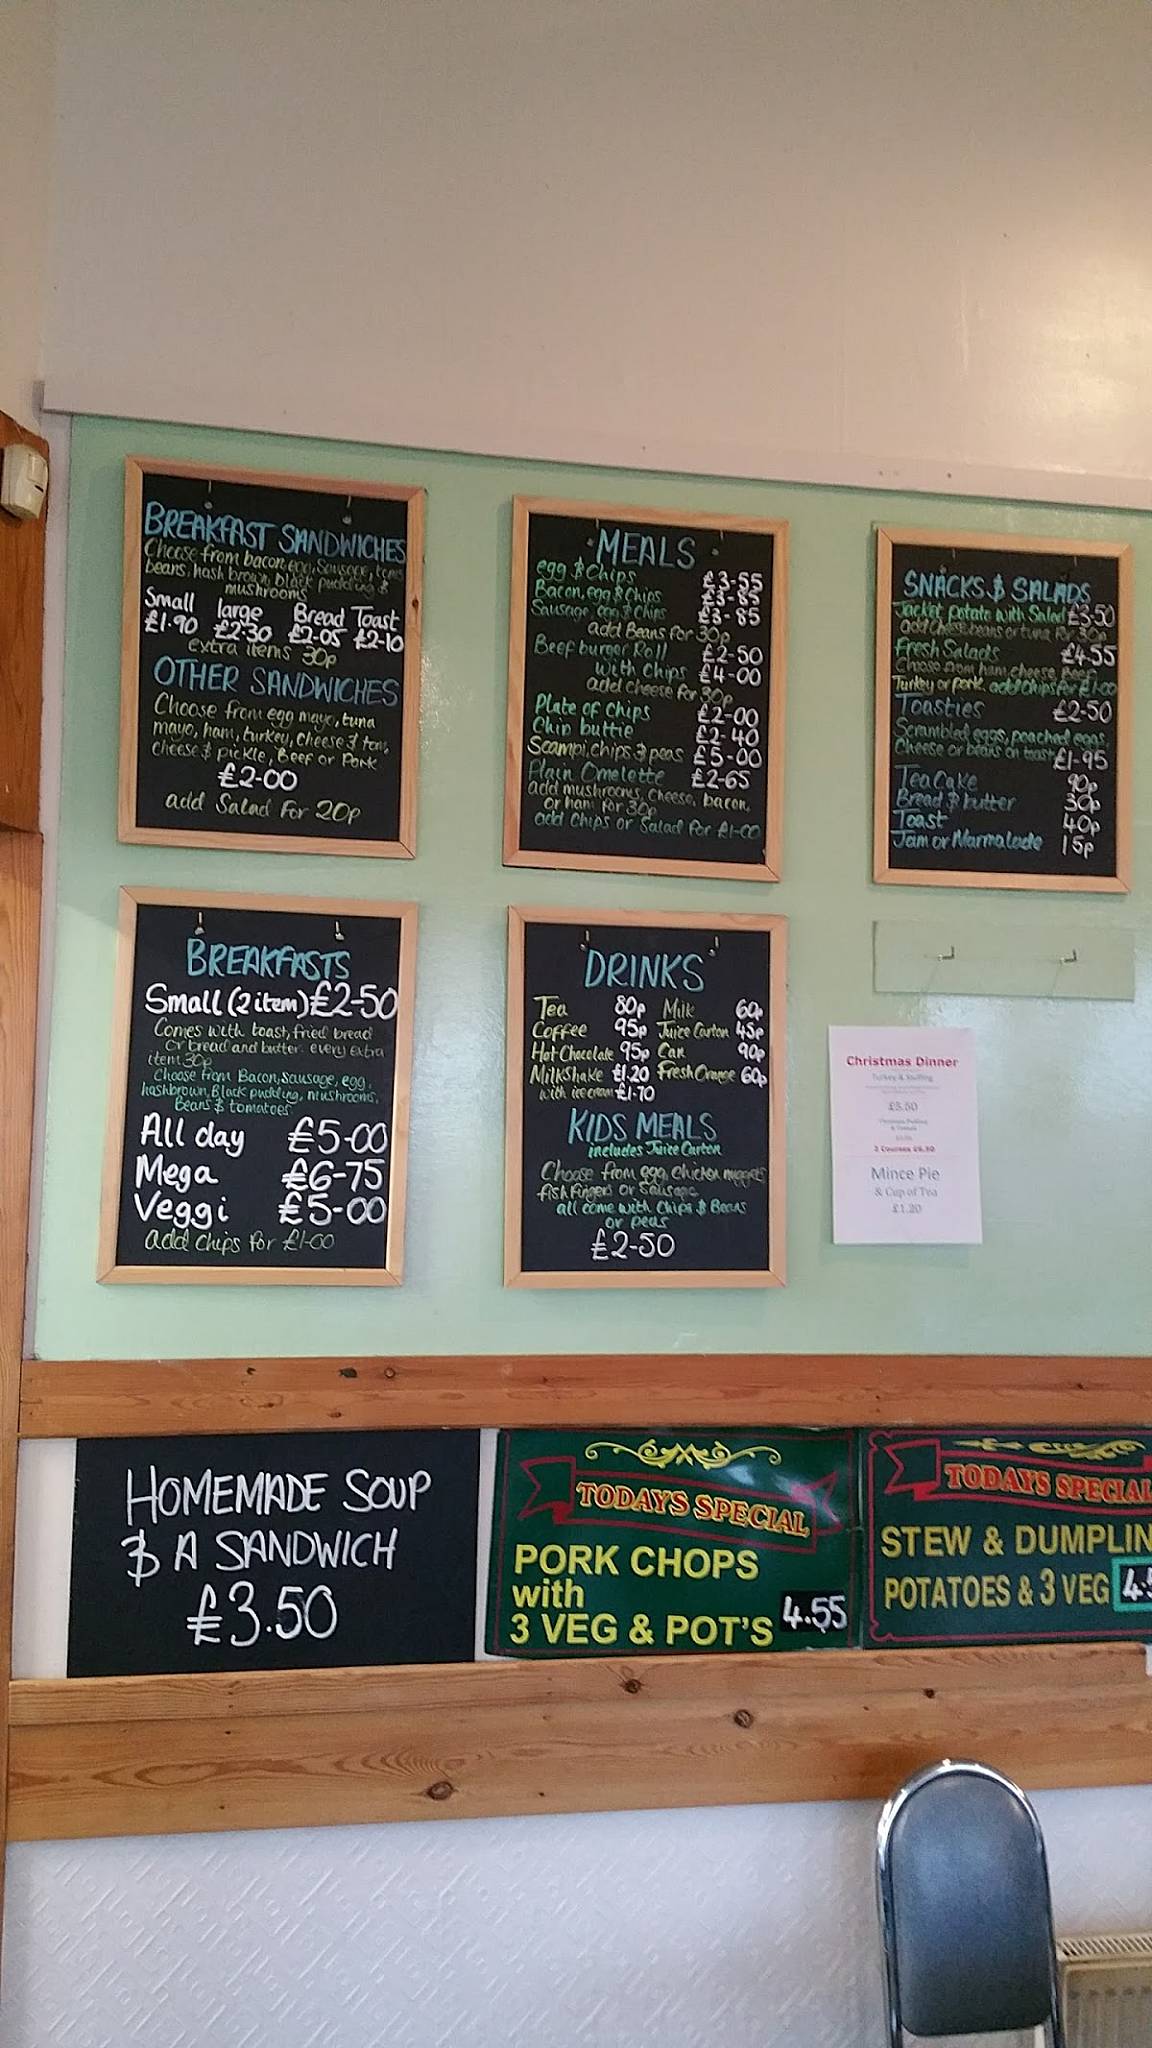 BREAKFAST SANDWICHES
Choose from bacon, egg, Sausage, toms
beans, hash brown, black pudding &
mushrooms
Small large Bread Toast
£1-90 £2-30 £2-05 £2-10
extra items 30p
OTHER SANDWICHES
Choose from egg mayo, tuna
mayo, ham, turkey, cheese & tom,
cheese & pickle, Beef or Pork
£2-00
add Salad for 20p
MEALS
egg & Chips £3-55
Bacon, egg & Chips £3-85
Sausage, egg & Chips £3-85
add Beans for 30p
Beef burger Roll £2-50
with Chips £4-00
add cheese for 30p
Plate of Chips £2-00
Chip buttie £2-40
Scampi, chips & peas £5-00
Plain Omelette £2-65
add mushrooms, cheese, bacon,
or ham for 30p
add Chips or Salad for £1-00
SNACKS & SALADS
Jacket potato with Salad £3-50
add Cheese beans or tuna for 30p
Fresh Salads £4-55
Choose from ham, cheese, Beef,
Turkey or pork. add chips for £1-00
Toasties £2-50
Scrambled eggs, poached eggs,
Cheese or beans on toast £1-95
Tea Cake 90p
Bread & butter 30p
Toast 40p
Jam or Marmalade 15p
BREAKFASTS
Small (2 item) £2-50
Comes with toast, fried bread
or bread and butter. every extra
item 30p
Choose from Bacon, Sausage, egg,
hashbrown, Black pudding, mushrooms,
Beans & tomatoes
All day £5-00
Mega £6-75
Veggi £5-00
add chips for £1-00
DRINKS
Tea 80p Milk 60p
Coffee 95p Juice Carton 45p
Hot Chocolate 95p Can 90p
MilkShake £1.20 Fresh Orange 60p
with ice cream £1-70
KIDS MEALS
includes Juice Carton
Choose from egg, Chicken nuggets
fish fingers or Sausage
all come with Chips & Beans
or peas
£2-50
Christmas Dinner
Turkey & Stuffing
£5.50
2 Courses £6.50
Mince Pie
& Cup of Tea
£1.20
HOMEMADE SOUP
& A SANDWICH
£3.50
TODAYS SPECIAL
PORK CHOPS
with
3 VEG & POT'S 4.55
TODAYS SPECIAL
STEW & DUMPLIN
POTATOES & 3 VEG 4.5